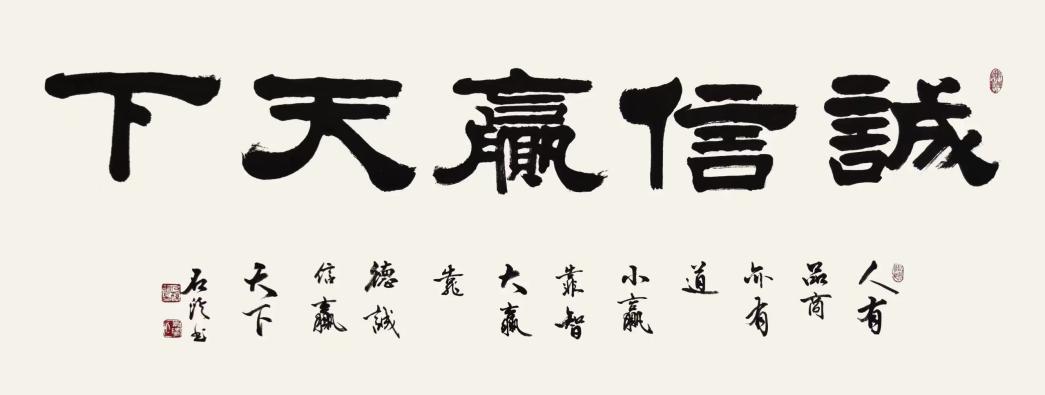 誠信贏天下
人有
品商
亦有
道
小贏
靠智
大贏
靠
德誠
信贏
天下
石浍书